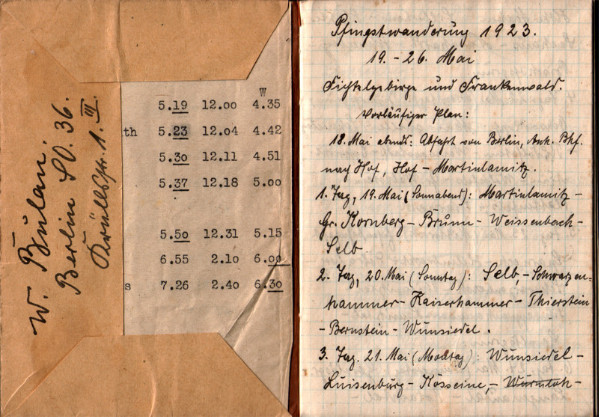 W. Bulan.
Berlin SO. 36.
Krüllsstr. 1. III.
W
5.19 12.00 4.35
th 5.23 12.04 4.42
5.30 12.11 4.51
5.37 12.18 5.00
5.50 12.31 5.15
6.55 2.10 6.00
s 7.26 2.40 6.30
Pfingstwanderung 1923.
19. - 26. Mai
Fichtelgebirge und Frankenwald.
Vorläufiger Plan:
18. Mai abends: Abfahrt von Berlin, Anh. Bhf.
nach Hof, Hof - Martinlamitz.
1. Tag, 19. Mai (Sonnabend): Martinlamitz -
Gr. Kornberg - Brunn - Weissenbach -
Selb
2. Tag, 20. Mai (Sonntag): Selb, - Schwarzen-
hammer - Kaiserhammer - Thierstein
- Bernstein - Wunsiedel.
3. Tag. 21. Mai (Montag): Wunsiedel -
Luisenburg - Kösseine, -